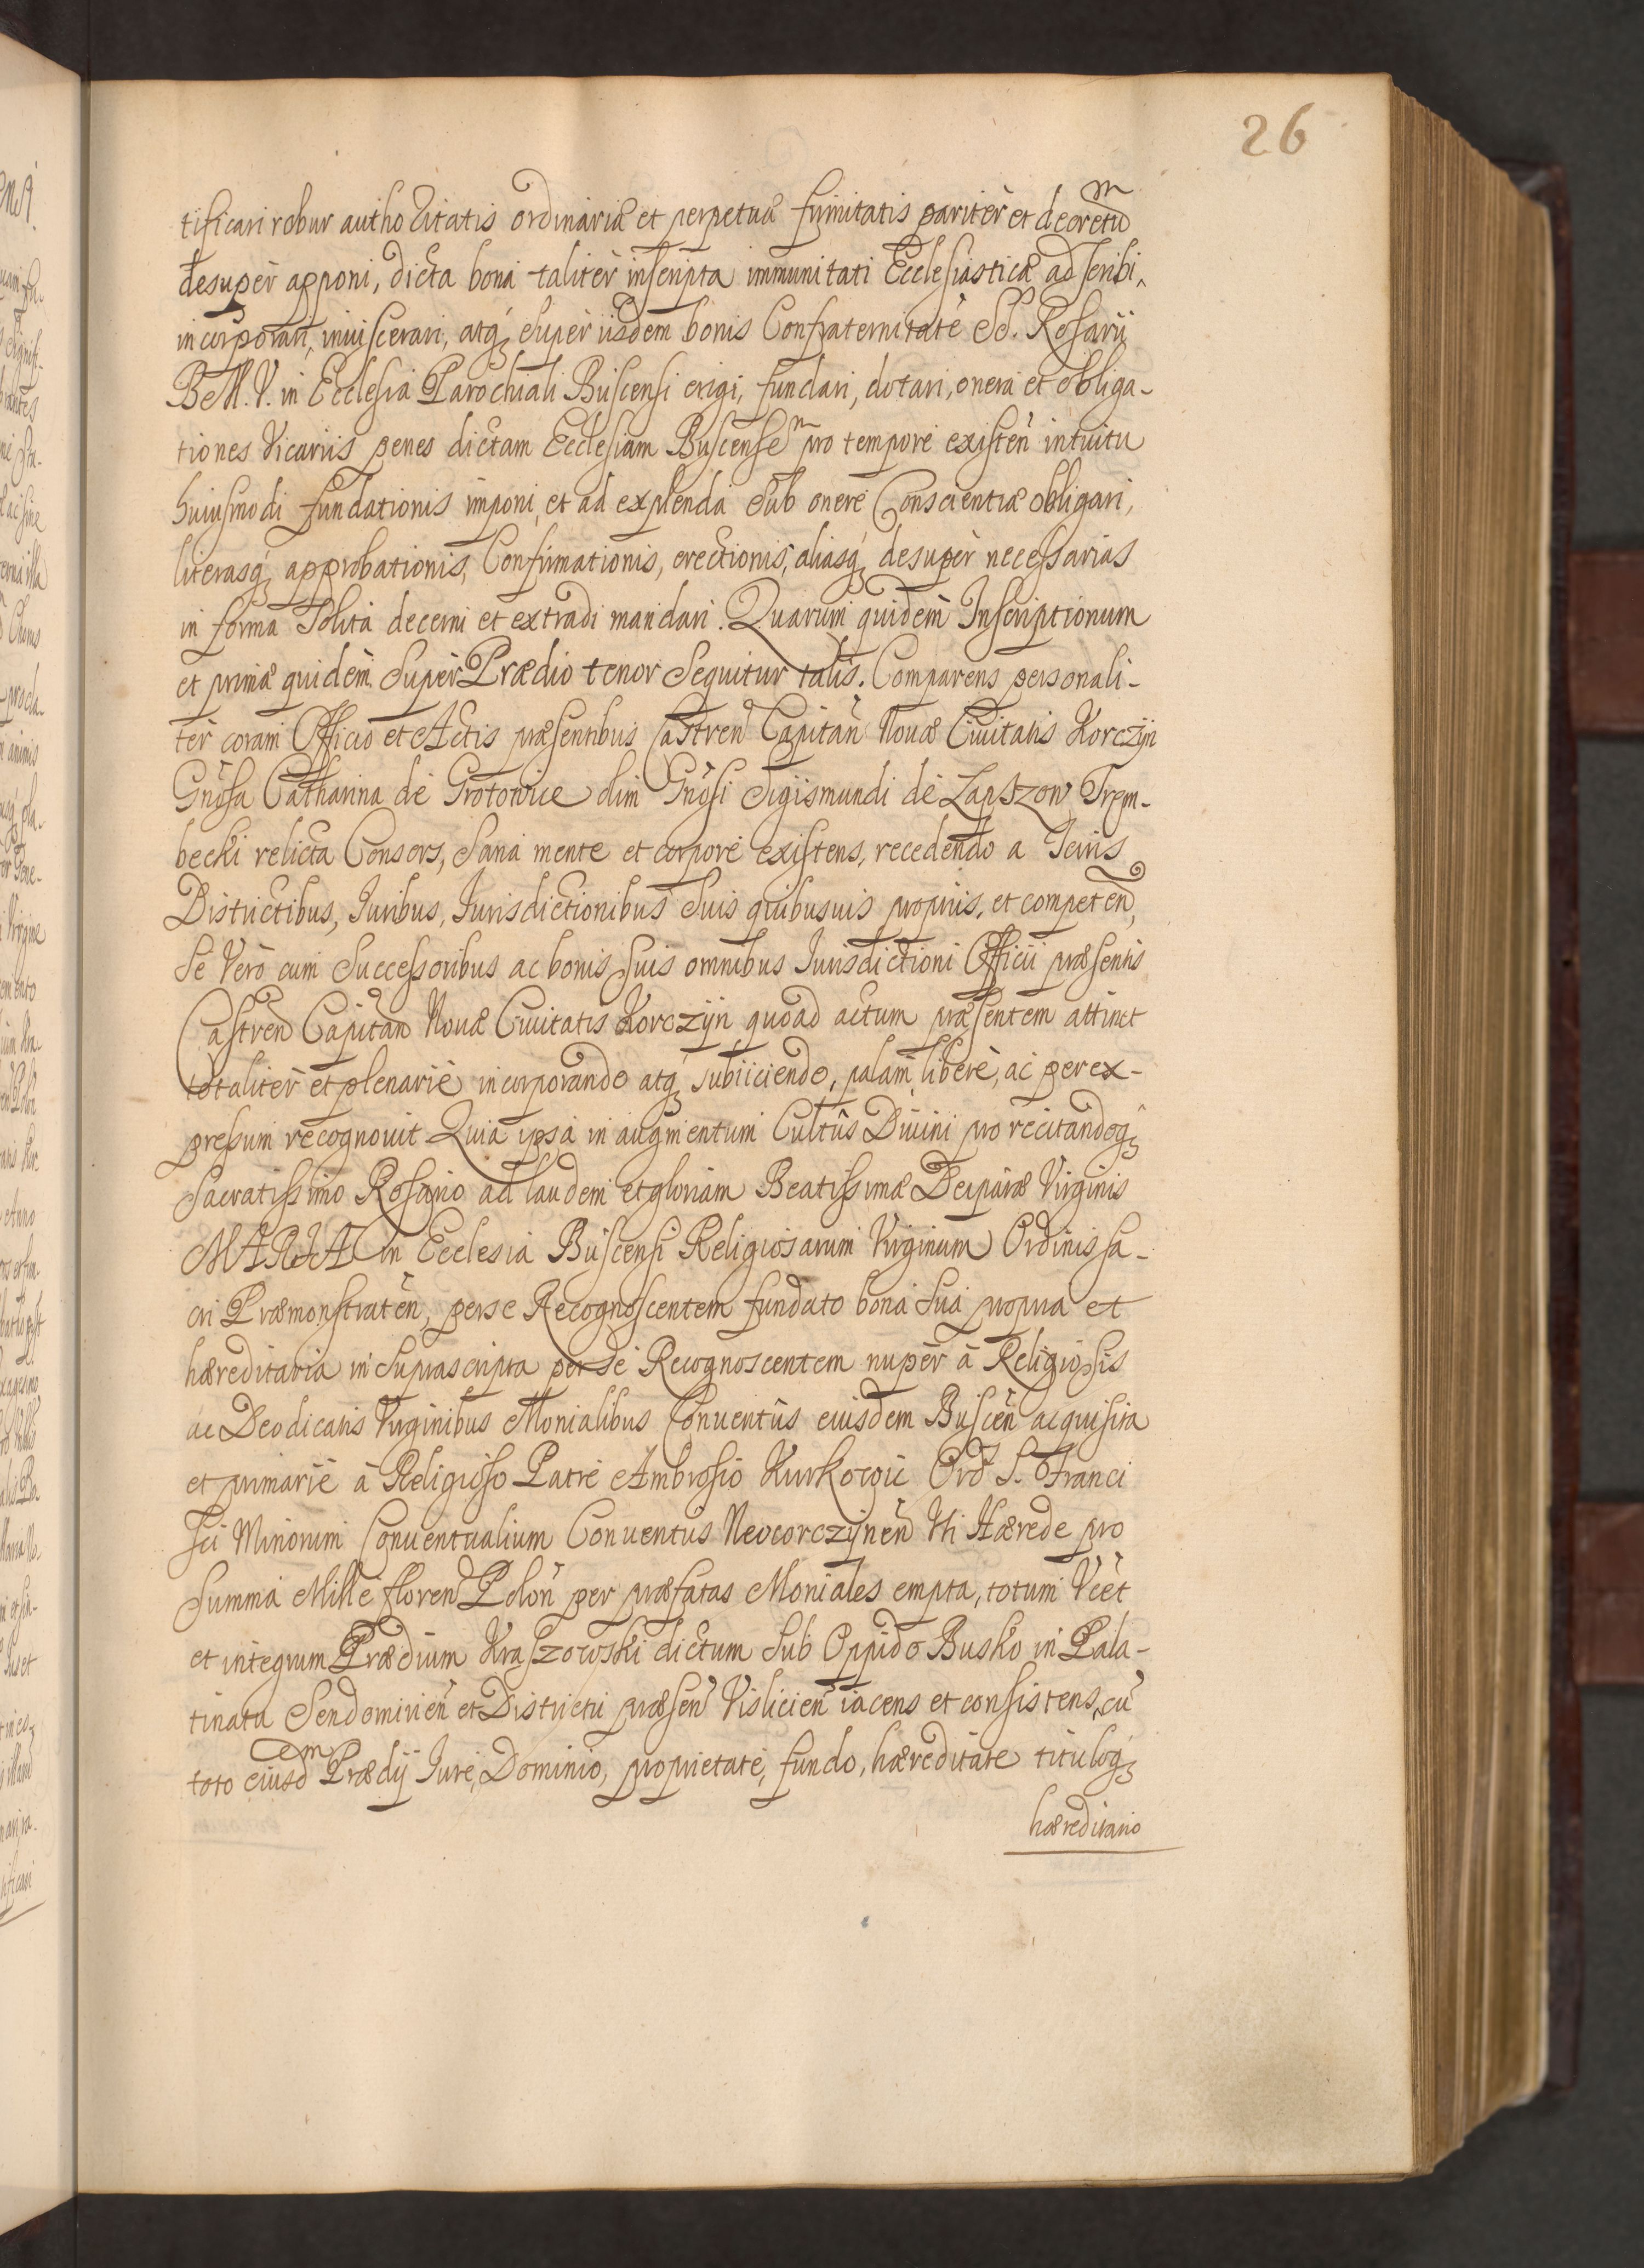 26
tificari robur authoritatis ordinariæ et perpetuæ firmitatis paritèr et decretũ
desupèr apponi, dicta bona talitèr inscripta immunitati Ecclesiasticæ adscribi,
incorporari, inuiscerari, atq́ɜ supèr iisdem bonis Confraternitatè SS. Rosarij
B. M. V. in Ecclesia Parochiali Buscensi erigi, fundari, dotari, onera et obliga-
tiones Vicariis penes dictam Ecclesiam Buscensem pro tempore existeñ intuitu
huiusmodi fundationis imponi, et ad explenda sub onere Conscientiæ obligari,
literasq́ɜ approbationis, Confirmationis, erectionis, aliasq́ɜ desupèr necessarias
in forma solita decerni et extradi mandari. Quarum quidem Inscriptionum
et primæ quidem supèr Prædio tenor sequitur talis. Comparens personali-
tèr coram Officio et Actis præsentibus Castreñ Capitañ Nouæ Ciuitatis Korczÿn
Gñosa Catharina de Grotowice olim Gñosi Sigismundi de Lapszow Trem-
becki relicta Consors, sana mente et corpore existens, recedendo a Terris
Districtibus, Iuribus, Iurisdictionibus suis quibusuis propriis, et competeñ,
se verò cum Successoribus ac bonis suis omnibus Iurisdictioni Officii præsentis
Castreñ Capitañ Nouæ Ciuitatis Korczÿn quoad actum præsentem attinet
totalitèr et plenariè incorporando atq́ɜ subiiciendo, palàm, liberè, ac per ex-
pressum recognouit Quia ipsa in augmentum Cultûs Diuini pro recitandoq́ɜ
Sacratissimo Rosario ad laudem et gloriam Beatissimæ Deiparæ Virginis
MARIÆ in Ecclesia Buscensi Religiosarum Virginum Ordinis sa-
cri Præmonstrateñ, per se Recognoscentem fundato bona sua propria et
hæreditaria in suprascripta per se Recognoscentem nupèr à Religiosis
ac Deodicatis Virginibus Monialibus Conuentûs eiusdem Busceñ acquisita
et primariè à Religioso Patre Ambrosio Kurkowic Ord S. Franci
sci Minorum Conuentualium Conuentus Neocorczÿneñ Uti Hærede pro
summa Mille floreñ Poloñ per præfatas Moniales empta, totum Veèt
et integrum Prædium Kraszowski dictum sub Oppido Busko in Pala-
tinatu Sendomirieñ et Districtu præseñ Vislicieñ iacens et consistens, cũ
toto eiusdem Prædij Iure, Dominio, proprietate, fundo, hæreditate tituloq́ɜ
hæreditario